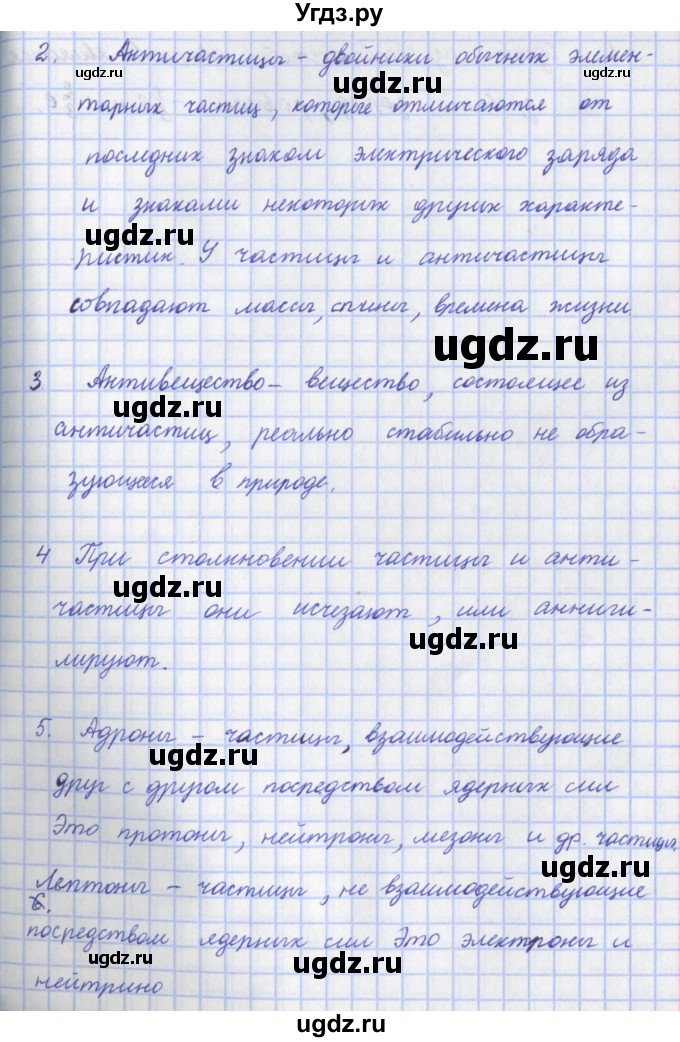 Угдз.ру
2. Античастицы – двойники обычных элемен-
ugdz.ru
тарных частиц, которые отличаются от
последних знаком электрического заряда
ugdz.ru
и знаками некоторых других характе-
ugdz.ru
ристик. У частицы и античастицы
совпадают массы, спины, времена жизни
ugdz.ru
3 Антивещество – вещество, состоящее из
ugdz.ru
античастиц, реально стабильно не обра-
зующееся в природе.
4 При столкновении частицы и анти-
ugdz.ru
частицы они исчезают, или анниги-
ugdz.ru
лируют.
5. Адроны – частицы, взаимодействующие
ugdz.ru
друг с другом посредством ядерных сил
Это протоны, нейтроны, мезоны и др. частицы,
ugdz.ru
Лептоны – частицы, не взаимодействующие
6.
посредством ядерных сил Это электроны и
ugdz.ru
нейтрино
ugdz.ru